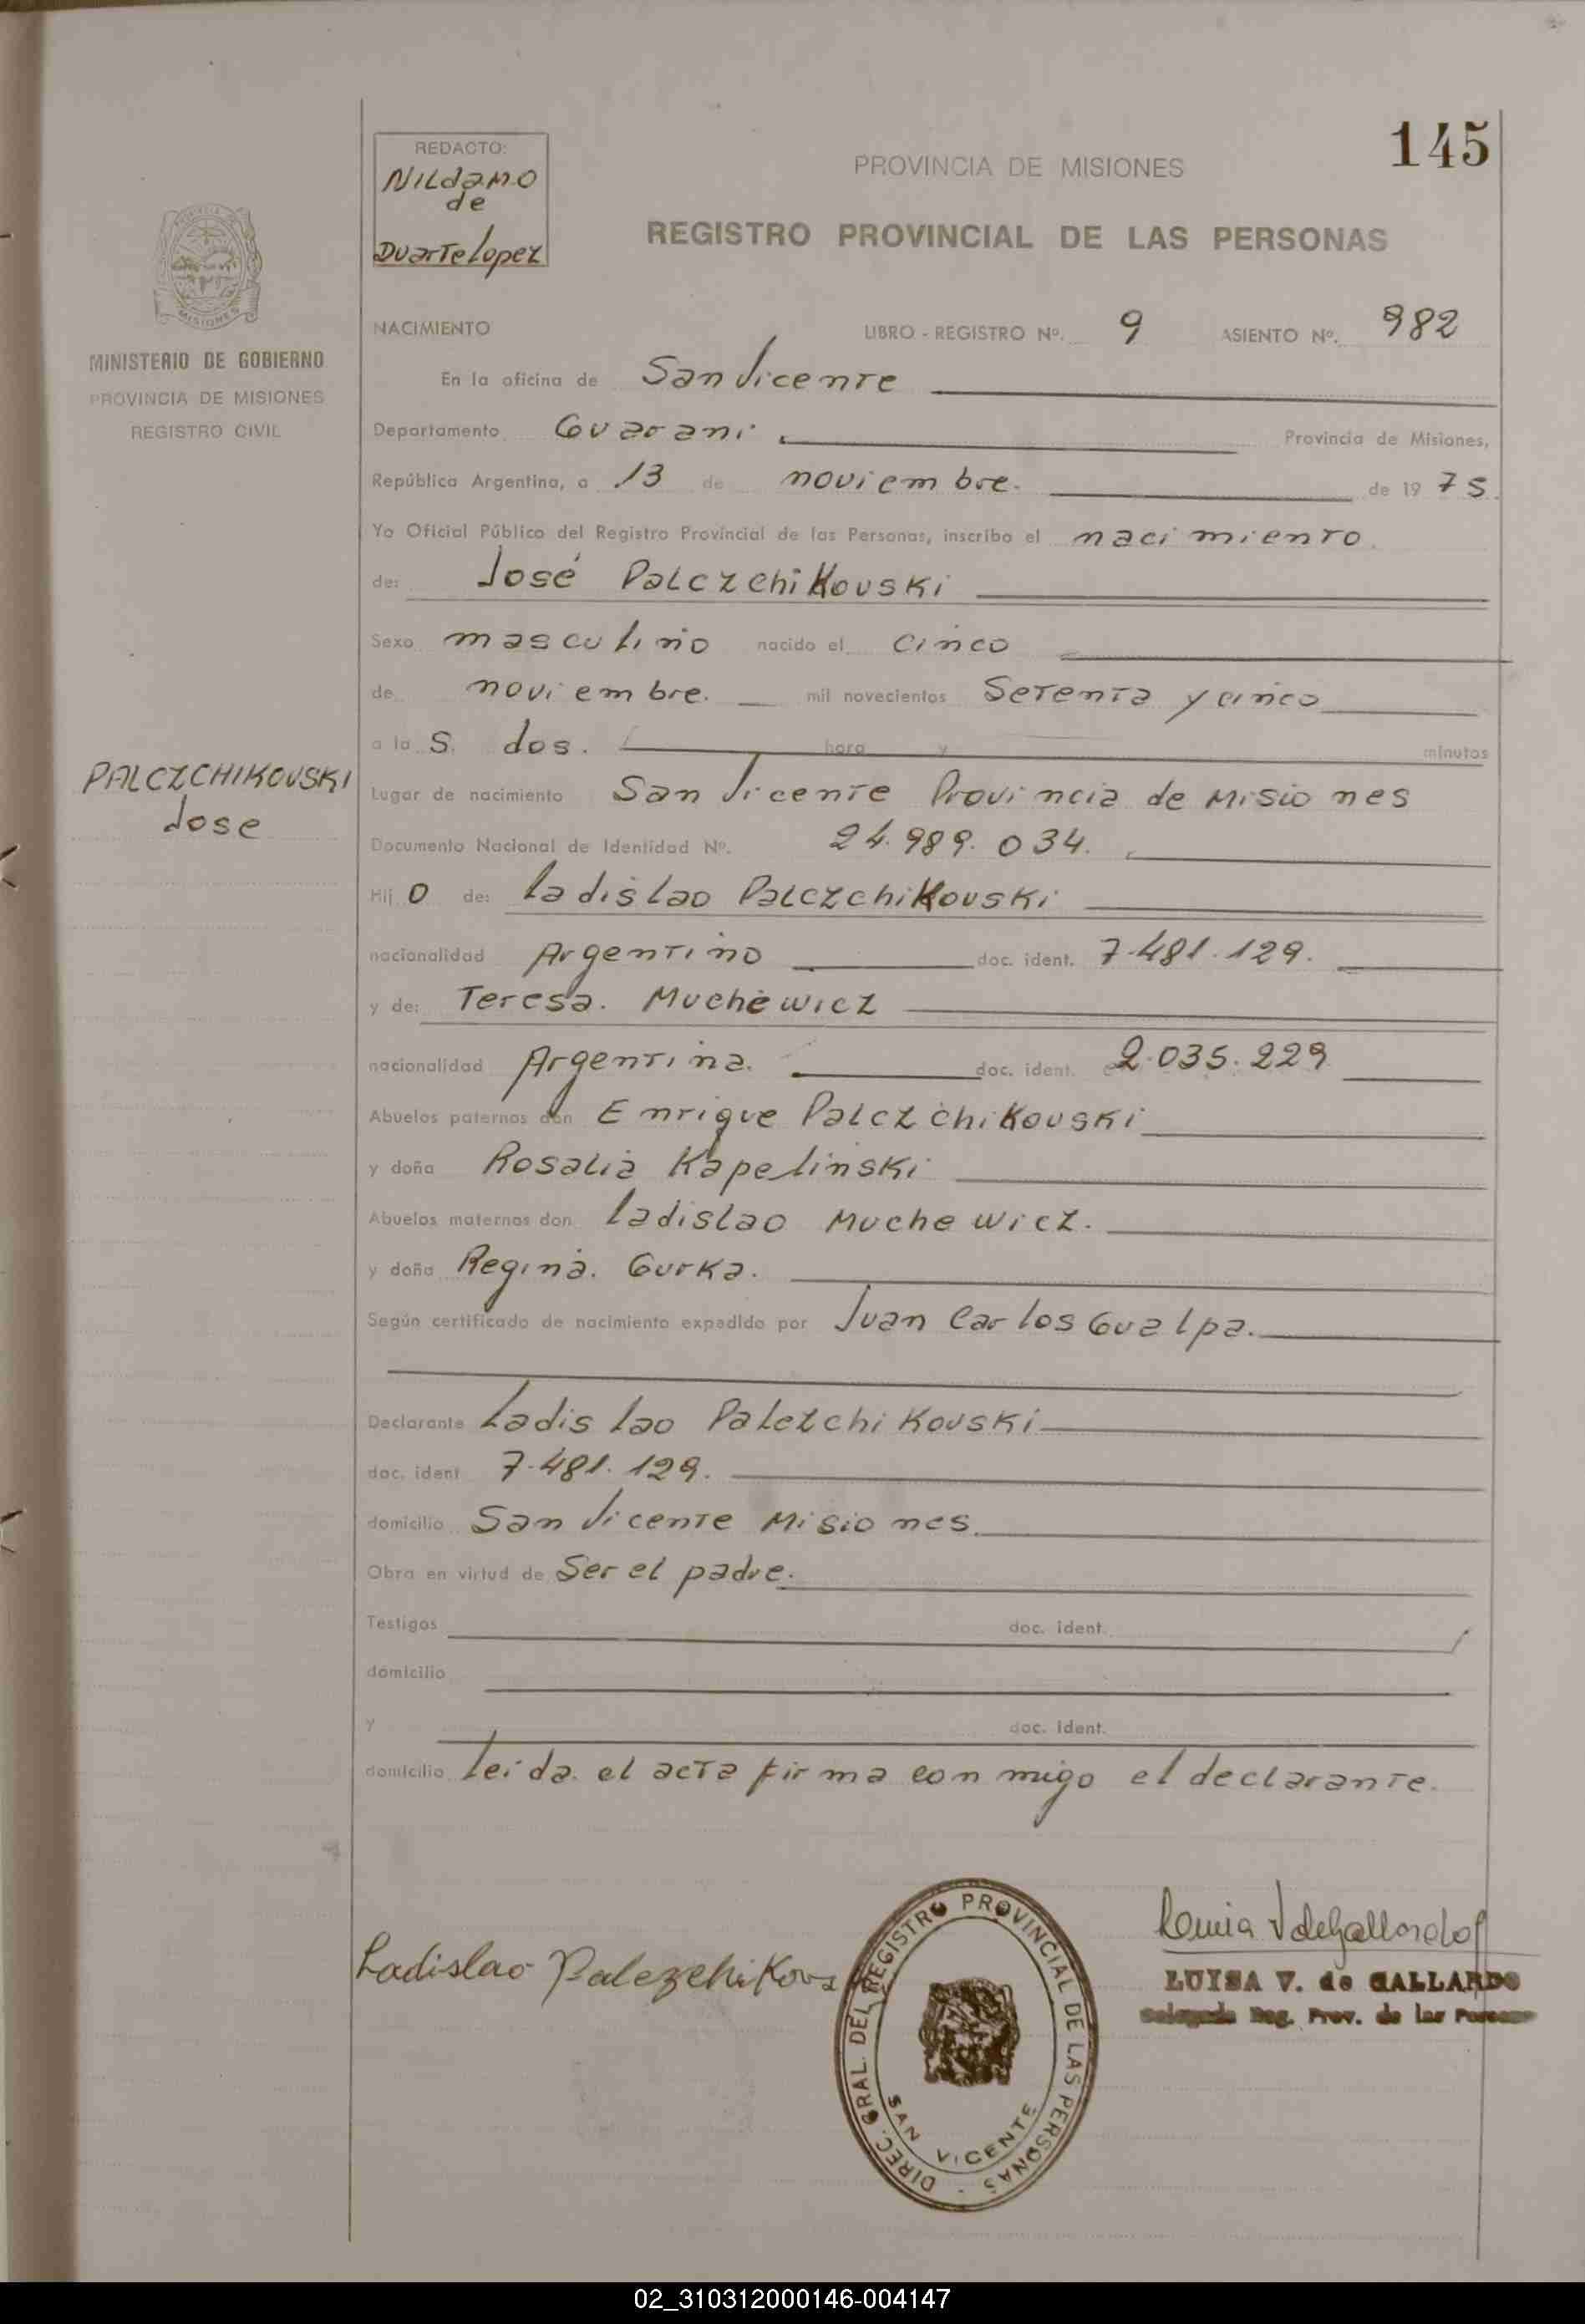 145
REDACTO:
NILdaM.O
de
DuarTe Lopez
PROVINCIA DE MISIONES
REGISTRO PROVINCIAL DE LAS PERSONAS
MISIONES
MINISTERIO DE GOBIERNO
PROVINCIA DE MISIONES
REGISTRO CIVIL
NACIMIENTO LIBRO - REGISTRO Nº. 9 ASIENTO Nº. 982
En la oficina de San Vicente
Departamento Guarani Provincia de Misiones,
República Argentina, a 13 de noviembre. de 19 75.
Yo Oficial Público del Registro Provincial de las Personas, inscribo el nacimiento.
de: José Palczchikouski
Sexo masculino nacido el cinco
de noviembre. mil novecientos Setenta y cinco
a la S. dos. hora y minutos
PALCZCHIKOUSKI
Jose
Lugar de nacimiento San Vicente Provincia de Misiones
Documento Nacional de Identidad Nº. 24.989.034.
Hij o de: Ladislao Palczchikouski
nacionalidad Argentino doc. ident. 7.481.129.
y de: Teresa. Muchewicz
nacionalidad Argentina. doc. ident. 2.035.229
Abuelos paternos don Enrique Palczchikouski
y doña Rosalia Kapelinski
Abuelos maternos don Ladislao Muchewicz.
y doña Regina. Gurka.
Según certificado de nacimiento expedido por Juan Carlos Gualpa.
Declarante Ladislao Palczchikouski
doc. ident 7.481.129.
domicilio San Vicente Misiones.
Obra en virtud de Ser el padre.
Testigos doc. ident.
domicilio
y doc. ident.
domicilio Leida. el acta firma conmigo el declarante.
Ladislao Palczchikous
DIREC. GRAL. DEL REGISTRO PROVINCIAL DE LAS PERSONAS -
SAN VICENTE
LUISA V. de GALLARDO
Delegada Reg. Prov. de las Personas
02_310312000146-004147